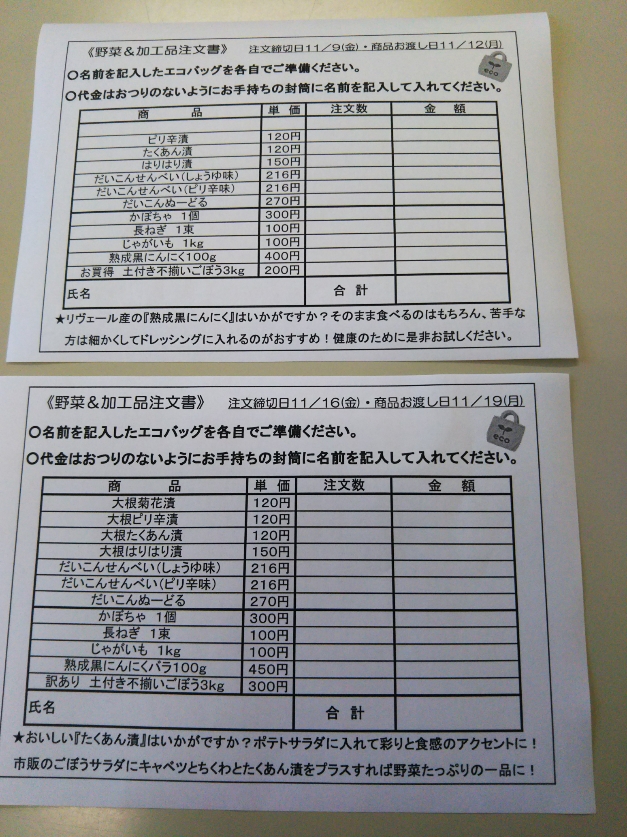 《野菜＆加工品注文書》 注文締切日11／9(金)・商品お渡し日11／12(月)
○名前を記入したエコバッグを各自でご準備ください。
eco
○代金はおつりのないようにお手持ちの封筒に名前を記入して入れてください。
商 品 単 価 注文数 金 額
ピリ辛漬 120円
たくあん漬 120円
はりはり漬 150円
だいこんせんべい(しょうゆ味) 216円
だいこんせんべい(ピリ辛味) 216円
だいこんぬーどる 270円
かぼちゃ 1個 300円
長ねぎ 1束 100円
じゃがいも 1kg 100円
熟成黒にんにく100g 400円
お買得 土付き不揃いごぼう3kg 200円
氏名 合 計
★リヴェール産の『熟成黒にんにく』はいかがですか？そのまま食べるのはもちろん、苦手な
方は細かくしてドレッシングに入れるのがおすすめ！健康のために是非お試しください。
《野菜＆加工品注文書》 注文締切日11／16(金)・商品お渡し日11／19(月)
○名前を記入したエコバッグを各自でご準備ください。
eco
○代金はおつりのないようにお手持ちの封筒に名前を記入して入れてください。
商 品 単 価 注文数 金 額
大根菊花漬 120円
大根ピリ辛漬 120円
大根たくあん漬 120円
大根はりはり漬 150円
だいこんせんべい(しょうゆ味) 216円
だいこんせんべい(ピリ辛味) 216円
だいこんぬーどる 270円
かぼちゃ 1個 300円
長ねぎ 1束 100円
じゃがいも 1kg 100円
熟成黒にんにくバラ100g 450円
訳あり 土付き不揃いごぼう3kg 300円
氏名 合 計
★おいしい『たくあん漬』はいかがですか？ポテトサラダに入れて彩りと食感のアクセントに！
市販のごぼうサラダにキャベツとちくわとたくあん漬をプラスすれば野菜たっぷりの一品に！